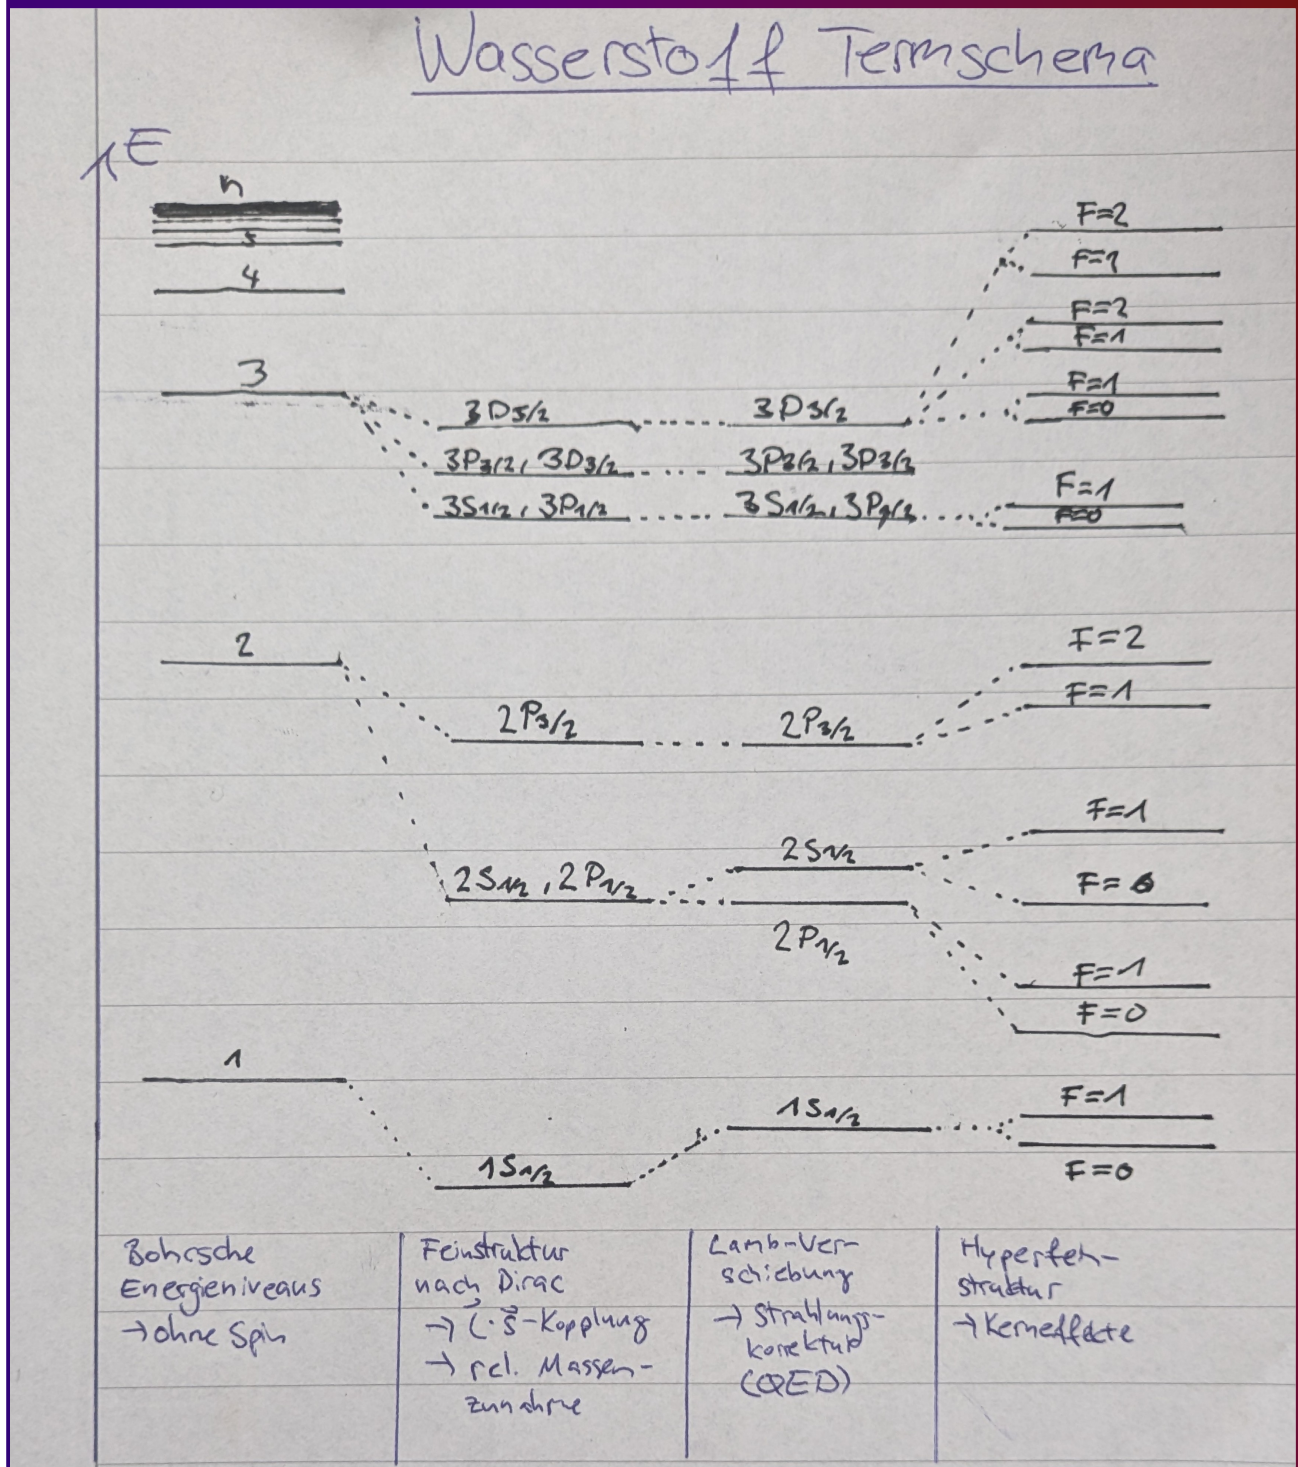 Wasserstoff Termschema
E
n
5
4
3
2
1
3D5/2
3P3/2, 3D3/2
3S1/2, 3P1/2
2P3/2
2S1/2, 2P1/2
1S1/2
3D5/2
3P3/2, 3D3/2
3S1/2, 3P1/2
2P3/2
2S1/2
2P1/2
1S1/2
F=2
F=1
F=2
F=1
F=1
F=0
F=1
F=0
F=2
F=1
F=1
F=0
F=1
F=0
F=1
F=0
Bohrsche
Energieniveaus
→ ohne Spin
Feinstruktur
nach Dirac
→ L·S-Kopplung
→ rel. Massen-
zunahme
Lamb-Ver-
schiebung
→ Strahlungs-
korrektur
(QED)
Hyperfein-
struktur
→ Kerneffekte